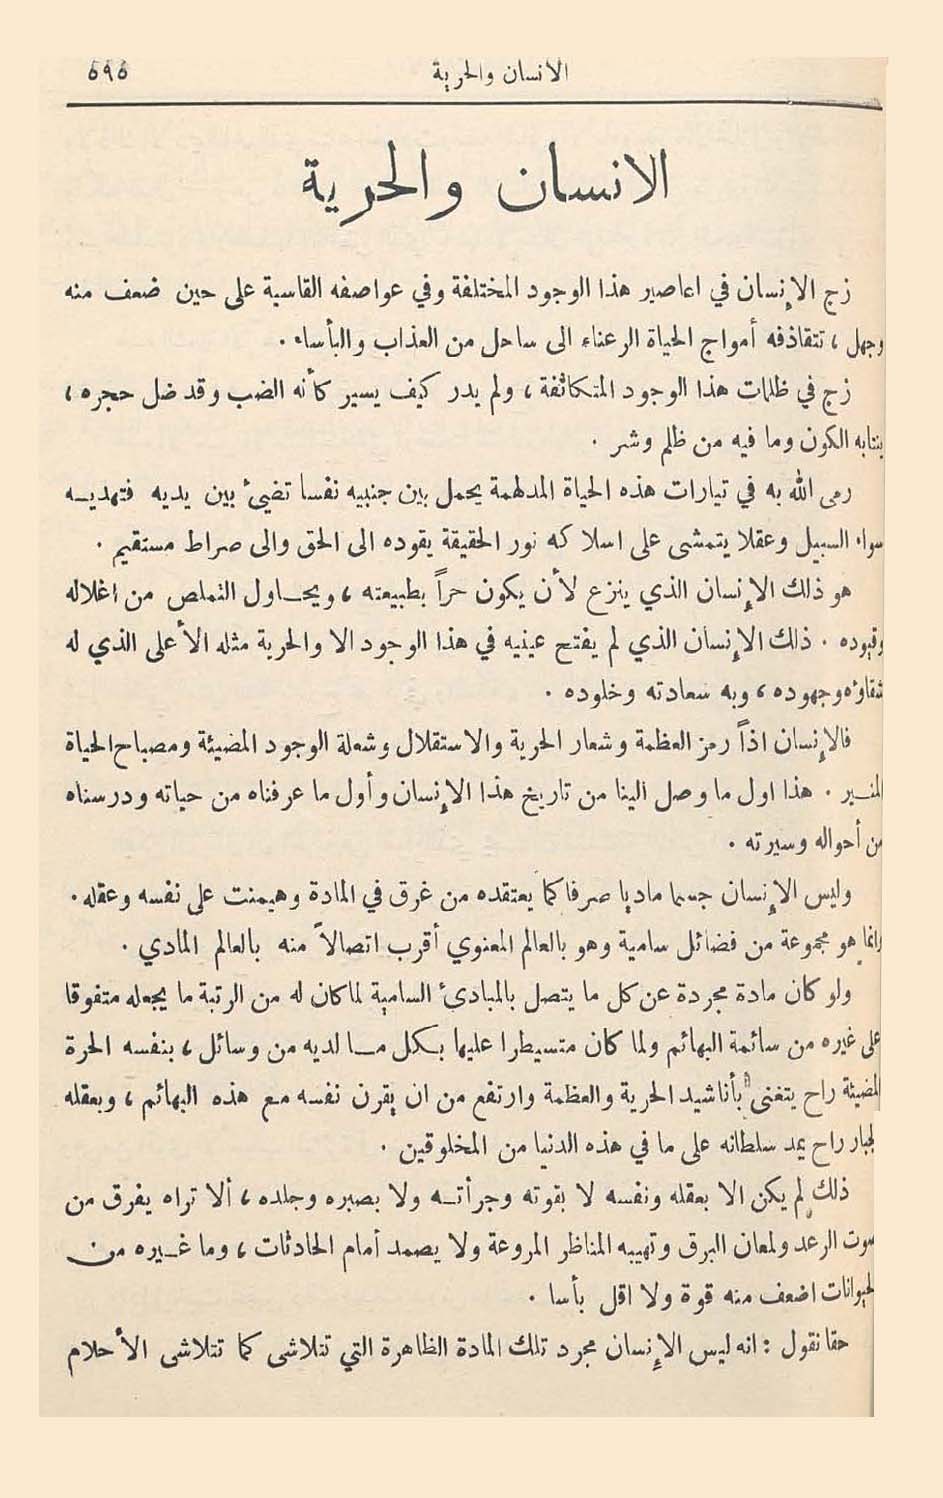 الانسان والحرية ٥٩٥
الانسان والحرية
زج الإنسان في اعاصير هذا الوجود المختلفة وفي عواصفه القاسية على حين ضعف منه
وجهل ، تتقاذفه أمواج الحياة الرعناء الى ساحل من العذاب والبأساء .
زج في ظلمات هذا الوجود المتكاثفة ، ولم يدر كيف يسير كأنه الضب وقد ضل حجره ،
ينتابه الكون وما فيه من ظلم وشر .
رمى الله به في تيارات هذه الحياة المدلهمة يحمل بين جنبيه نفسا تضيئ بين يديه فتهديـه
سواء السبيل وعقلا يتمشى على اسلاكه نور الحقيقة يقوده الى الحق والى صراط مستقيم .
هو ذلك الإنسان الذي ينزع لأن يكون حراً بطبيعته ، ويحـاول التملص من اغلاله
وقيوده . ذلك الإنسان الذي لم يفتح عينيه في هذا الوجود الا والحرية مثله الأعلى الذي له
شقاؤه وجهوده ، وبه سعادته وخلوده .
فالإنسان اذاً رمز العظمة وشعار الحرية والاستقلال وشعلة الوجود المضيئة ومصباح الحياة
المنـير . هذا اول ما وصل الينا من تاريخ هذا الإنسان وأول ما عرفناه من حياته ودرسناه
من أحواله وسيرته .
وليس الإنسان جسما ماديا صرفا كما يعتقده من غرق في المادة وهيمنت على نفسه وعقله .
وإنما هو مجموعة من فضائل سامية وهو بالعالم المعنوي أقرب اتصالاً منه بالعالم المادي .
ولو كان مادة مجردة عن كل ما يتصل بالمبادئ السامية لما كان له من الرتبة ما يجعله متفوقا
على غيره من سائمة البهائم ولما كان متسيطرا عليها بـكل مـا لديه من وسائل ، بنفسه الحرة
المضيئة راح يتغنى بأناشيد الحرية والعظمة وارتفع من ان يقرن نفسه مـع هذه البهائم ، وبعقله
الجبار راح يمد سلطانه على ما في هذه الدنيا من المخلوقين .
ذلك لم يكن الا بعقله ونفسه لا بقوته وجرأتـه ولا بصبره وجلده ، ألا تراه يفرق من
صوت الرعد ولمعان البرق وتهيبه المناظر المروعة ولا يصمد أمام الحادثات ، وما غـيره مـن
الحيوانات اضعف منه قوة ولا اقل بأسا .
حقا نقول : انه ليس الإنسان مجرد تلك المادة الظاهرة التي تتلاشى كما تتلاشى الأحلام